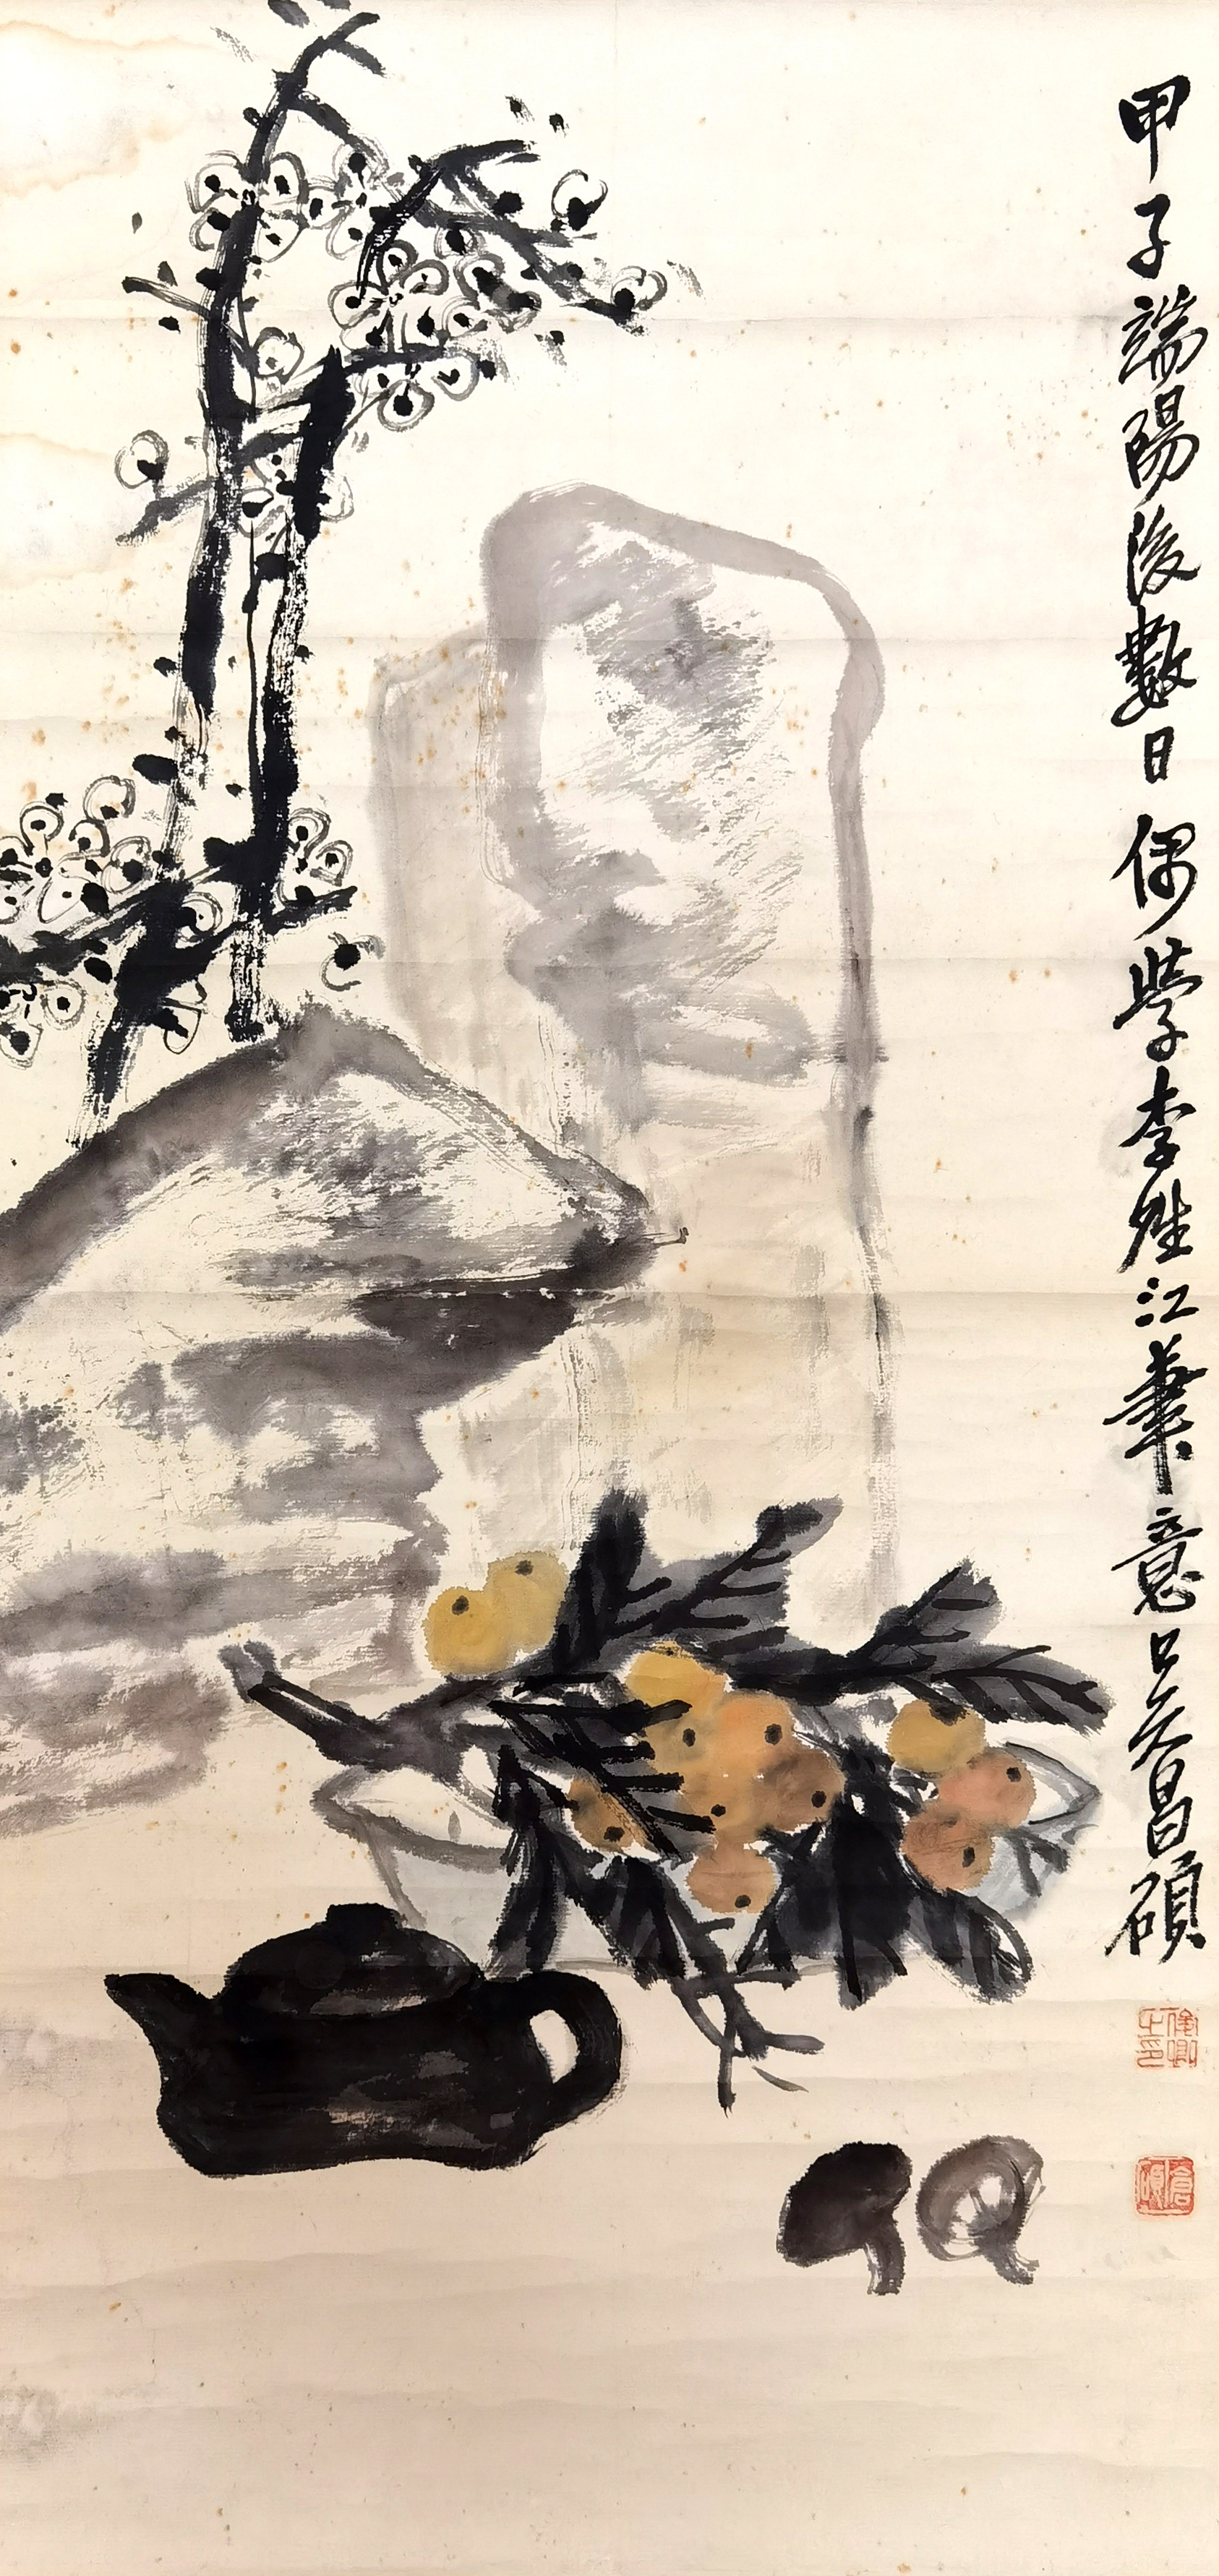 甲子端陽後數日偶學李夝江筆意吳昌碩
俊卿之印
倉碩